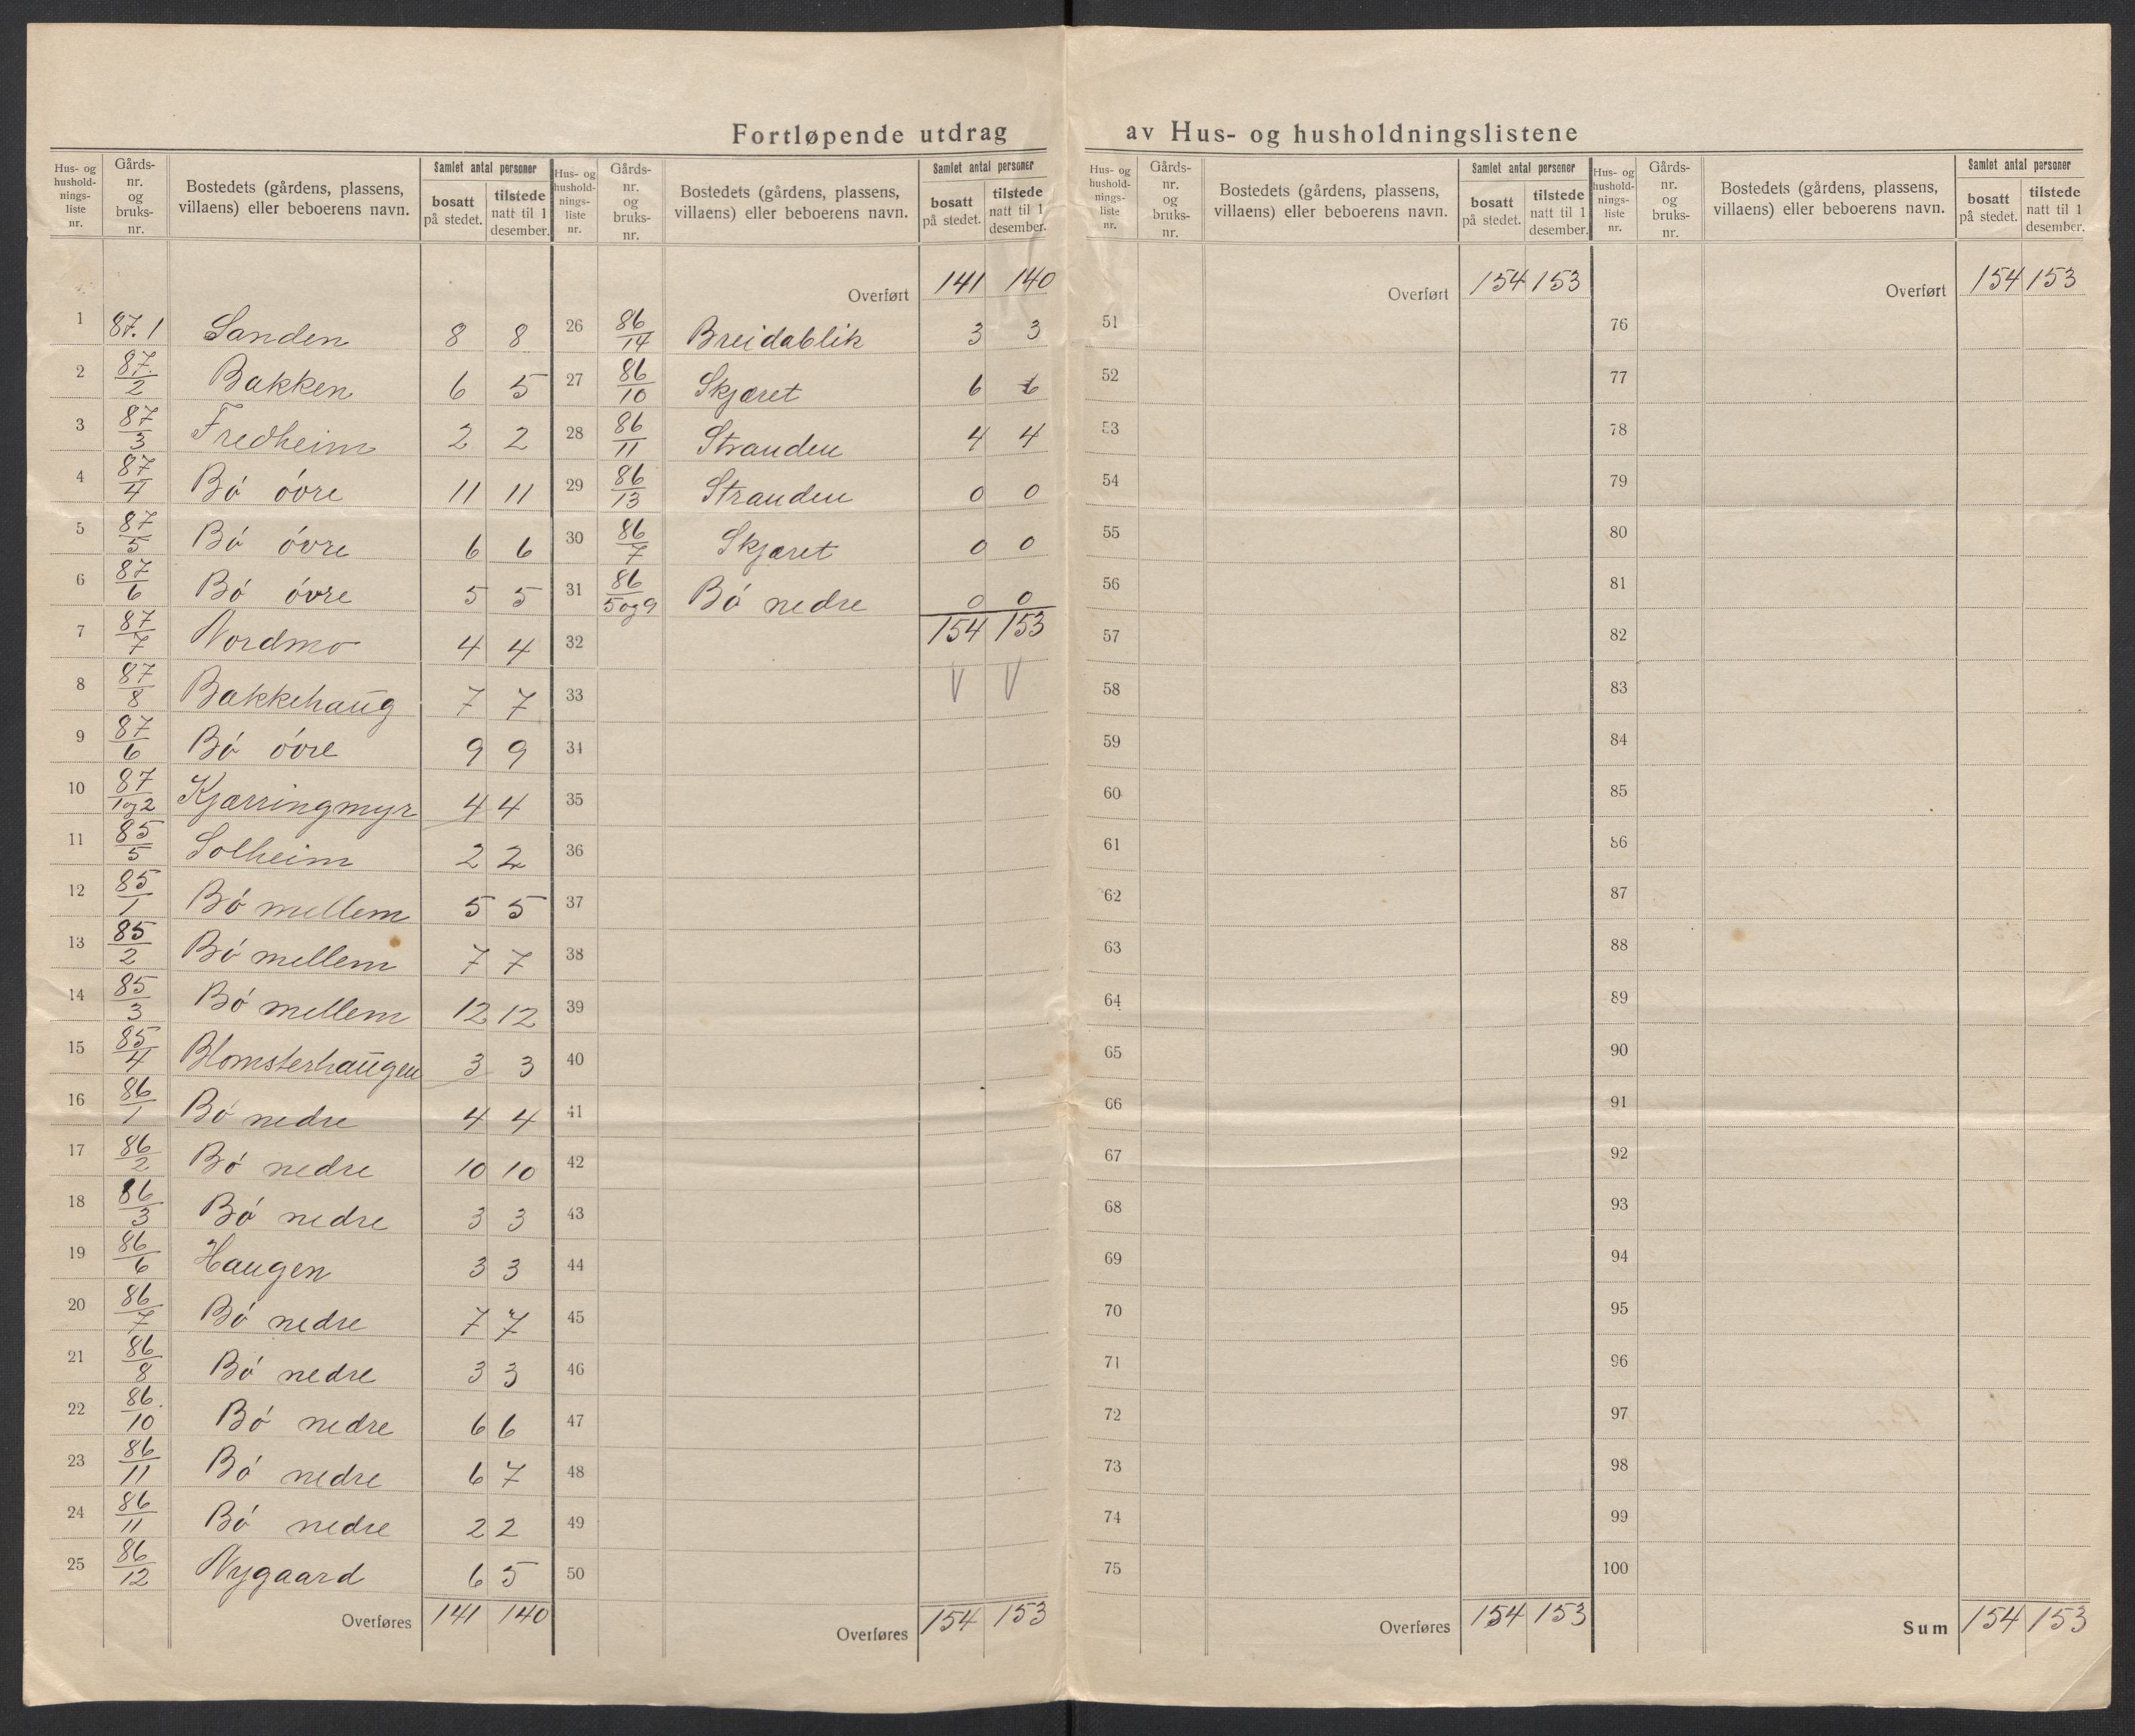 Fortløpende utdrag av Hus- og husholdningslistene
Hus- og hushold- nings- liste nr. | Gårds- nr. og bruks- nr. | Bostedets (gårdens, plassens, villaens) eller beboerens navn. | Samlet antal personer | bosatt på stedet. | tilstede natt til 1 desember.
1 87.1 Sanden 8 8
2 87/2 Bakken 6 5
3 87/3 Fredheim 2 2
4 87/4 Bó óvre 11 11
5 87/5 Bó óvre 6 6
6 87/6 Bó óvre 5 5
7 87/7 Nordmo 4 4
8 87/8 Bakkehaug 7 7
9 87/6 Bó óvre 9 9
10 87/1og2 Kjærringmyr 4 4
11 85/5 Solheim 2 2
12 85/1 Bó mellem 5 5
13 85/2 Bó mellem 7 7
14 85/3 Bó mellem 12 12
15 85/4 Blomsterhaugen 3 3
16 86/1 Bó nedre 4 4
17 86/2 Bó nedre 10 10
18 86/3 Bó nedre 3 3
19 86/6 Haugen 3 3
20 86/7 Bó nedre 7 7
21 86/8 Bó nedre 3 3
22 86/10 Bó nedre 6 6
23 86/11 Bó nedre 6 7
24 86/11 Bó nedre 2 2
25 86/12 Nygaard 6 5
Overføres 141 140
Hus- og hushold- nings- liste nr. | Gårds- nr. og bruks- nr. | Bostedets (gårdens, plassens, villaens) eller beboerens navn. | Samlet antal personer | bosatt på stedet. | tilstede natt til 1 desember.
Overført 141 140
26 86/14 Breidablik 3 3
27 86/10 Skjæret 6 6
28 86/11 Stranden 4 4
29 86/13 Stranden 0 0
30 86/7 Skjæret 0 0
31 86/5og9 Bó nedre 0 0
32 154 153
33 V V
34
35
36
37
38
39
40
41
42
43
44
45
46
47
48
49
50
Overføres 154 153
Hus- og hushold- nings- liste nr. | Gårds- nr. og bruks- nr. | Bostedets (gårdens, plassens, villaens) eller beboerens navn. | Samlet antal personer | bosatt på stedet. | tilstede natt til 1 desember.
Overført 154 153
51
52
53
54
55
56
57
58
59
60
61
62
63
64
65
66
67
68
69
70
71
72
73
74
75
Overføres 154 153
Hus- og hushold- nings- liste nr. | Gårds- nr. og bruks- nr. | Bostedets (gårdens, plassens, villaens) eller beboerens navn. | Samlet antal personer | bosatt på stedet. | tilstede natt til 1 desember.
Overført 154 153
76
77
78
79
80
81
82
83
84
85
86
87
88
89
90
91
92
93
94
95
96
97
98
99
100
Sum 154 153